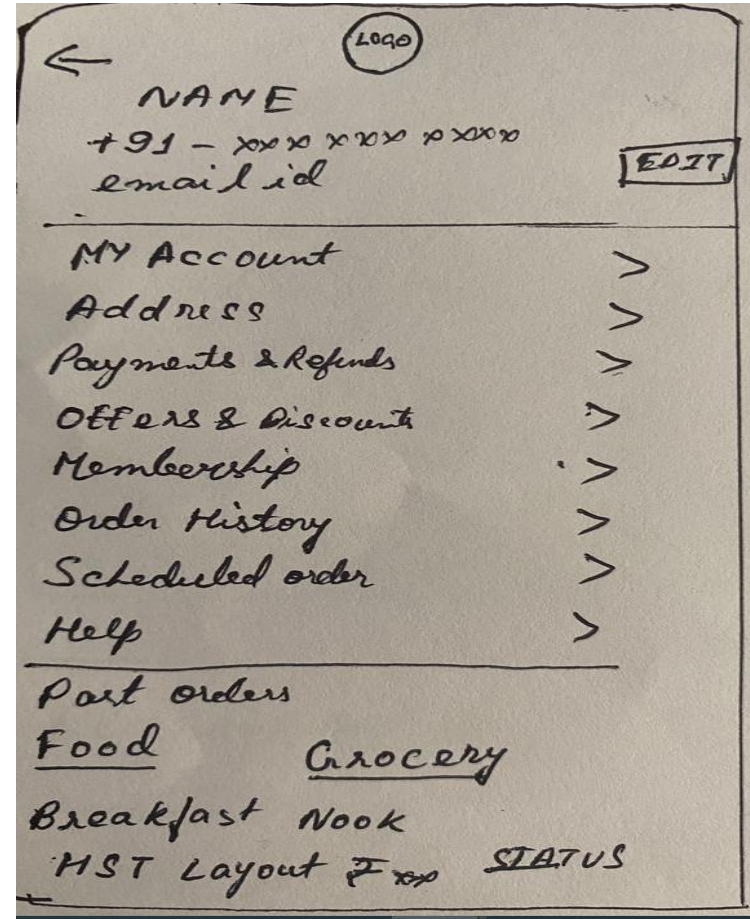 LOGO
NAME
+91 - xxx xxx xxxx
email id
EDIT
MY Account >
Address >
Payments & Refunds >
Offers & Discounts >
Membership >
Order History >
Scheduled order >
Help >
Past orders
Food Grocery
Breakfast Nook
HST Layout ₹xx STATUS